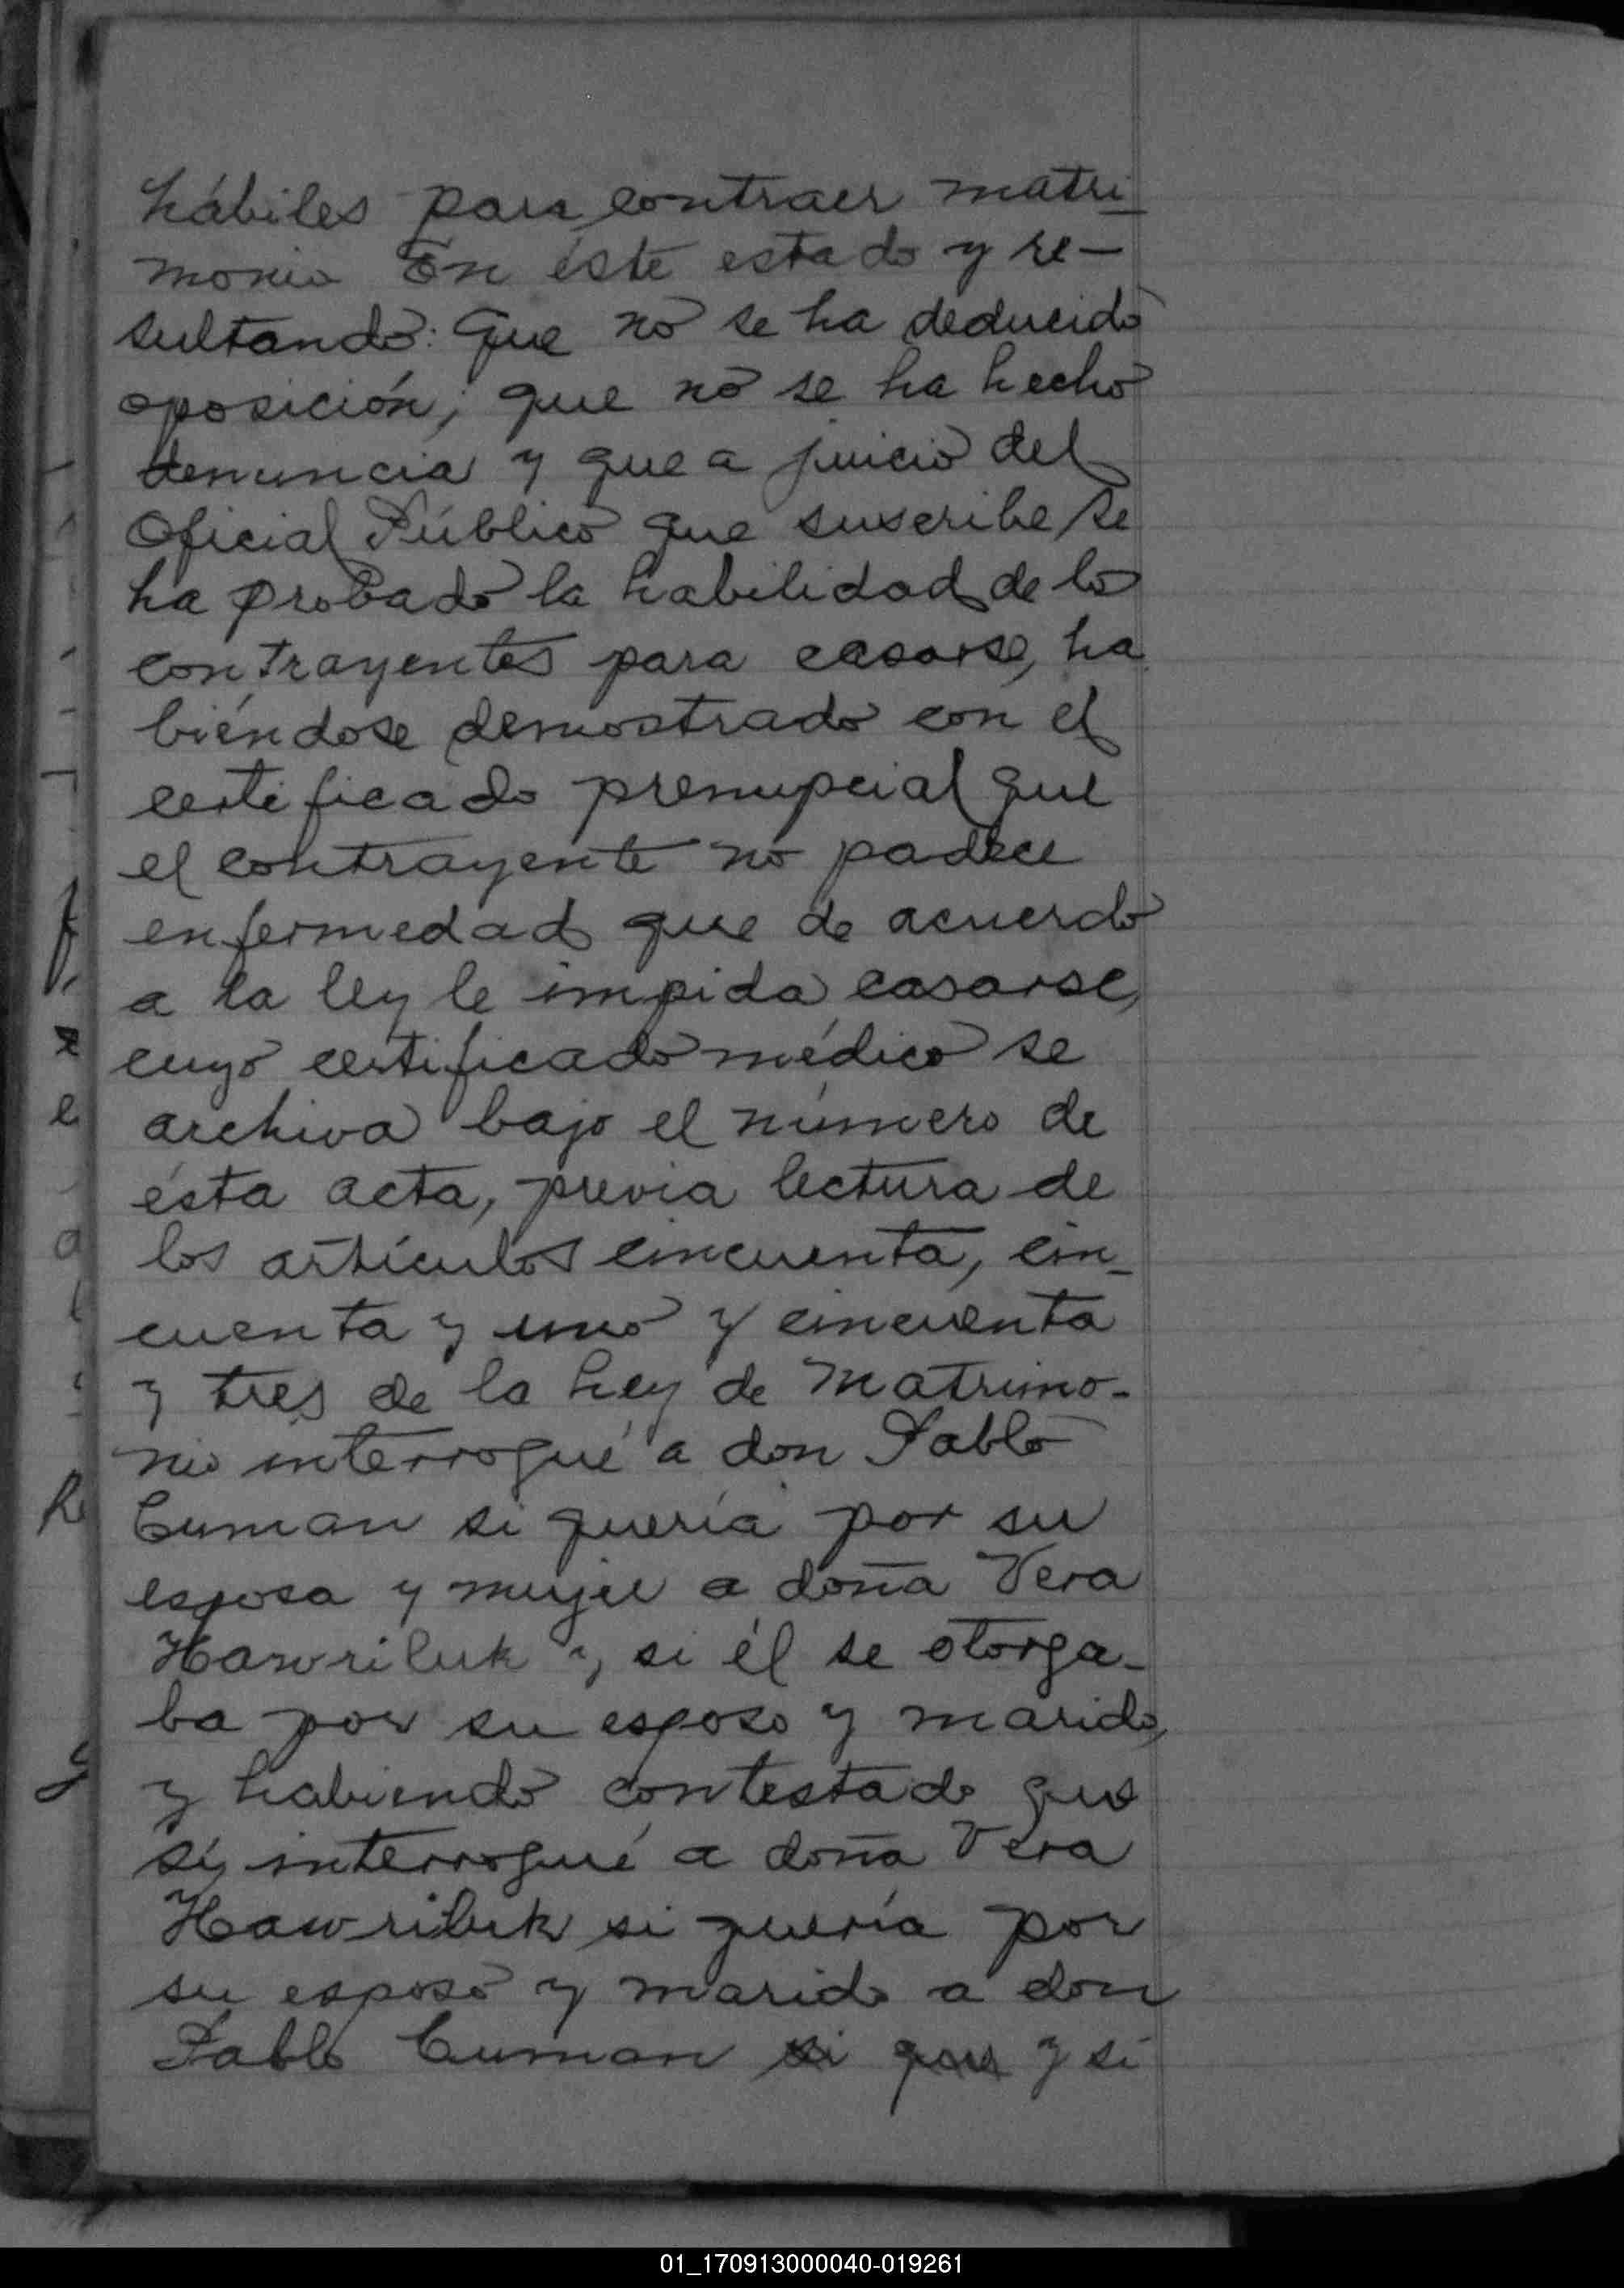 hábiles para contraer matri-
monio En éste estado y re-
sultando: Que no se ha deducido
oposición; que no se ha hecho
denuncia y que a juicio del
Oficial Público que suscribe se
ha probado la habilidad de lo
contrayentes para casarse, ha
biéndose demostrado con el
certificado prenupcial que
el contrayente no padece
enfermedad que de acuerdo
a la ley le impida casarse,
cuyo certificado médico se
archiva bajo el número de
ésta acta, previa lectura de
los artículos cincuenta, cin-
cuenta y uno y cincuenta
y tres de la Ley de Matrimo-
nio interrogué a don Pablo
Cuman si quería por su
esposa y mujer a doña Vera
Hawriluk y si él se otorga-
ba por su esposo y marido,
y habiendo contestado que
sí, interrogué a doña Vera
Hawriluk si quería por
su esposo y marido a don
Pablo Cuman si que y si
01_170913000040-019261